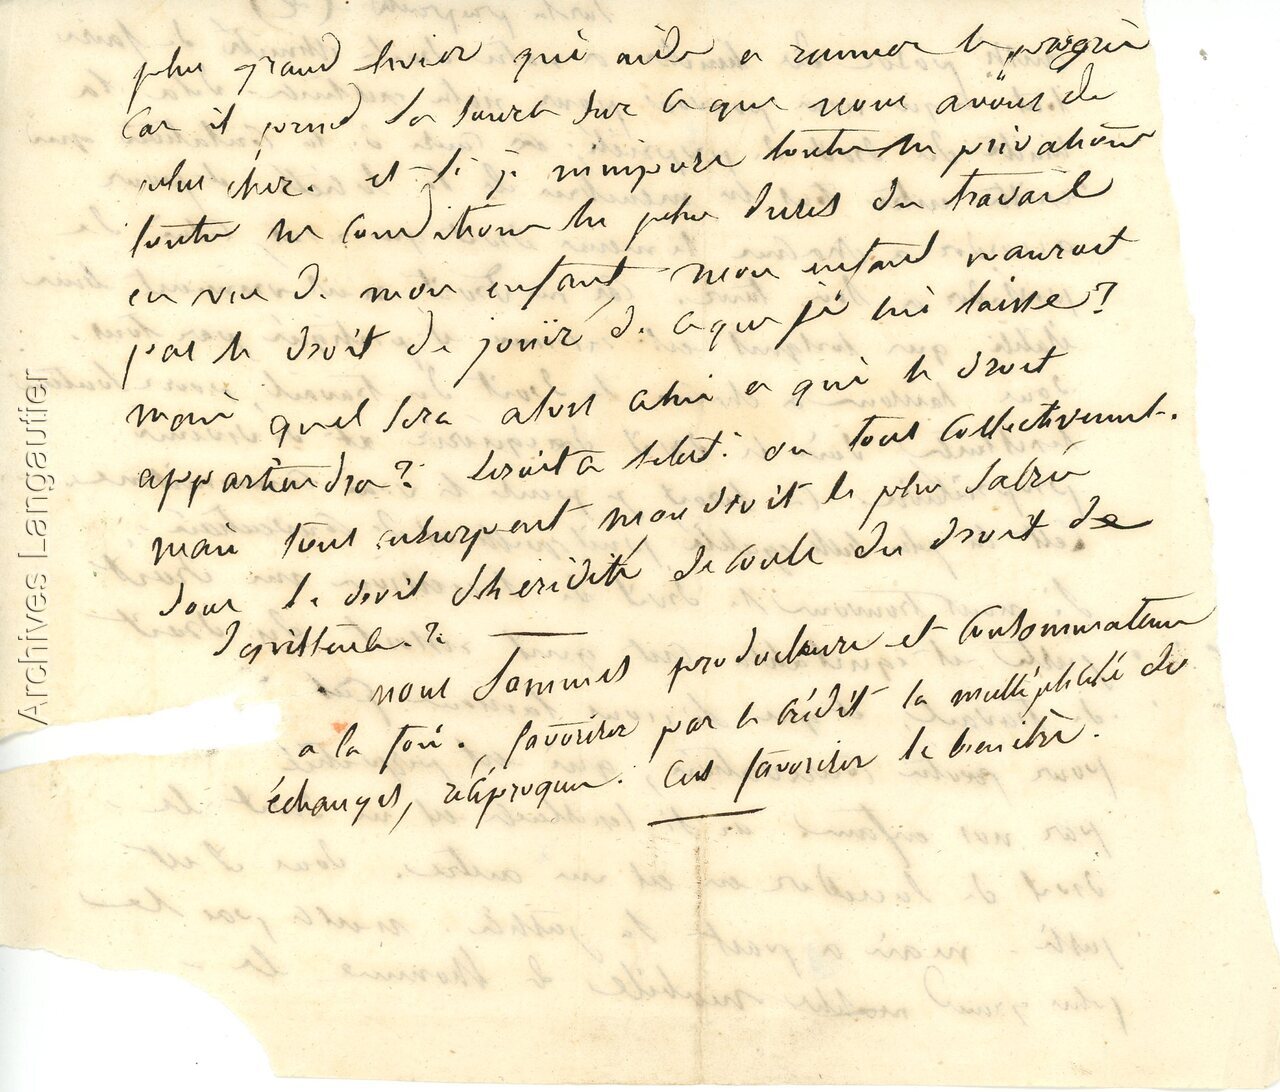 plus grand levier qui aide a ramner le progrèi
car il prend sa source sur ce que nous avons de
plus cher. et si je m'impose toutes les privations
toutes les conditions les plus dures du travail
en vue de mon enfant mon enfant n'auroit
pas le droit de jouir de ce que je lui laisse?
mais quel sera alors celui a qui le droit
appartiendra? seroit a l'état. ou tous collectivement.
mais tous usurpent mon droit le plus sacré
donc le droit d'heridité decoule du droit de
nous sommes producteurs et consommateurs
a la foi. favoriser par le crédit la multiplicité des
échanges, réciproques. c'est favoriser le bienêtre.
Archives Langautier